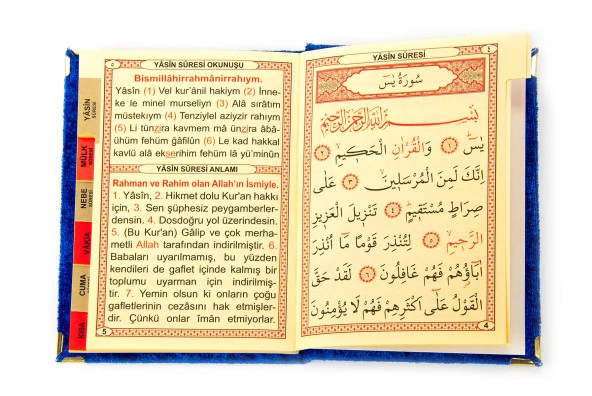 YÂSÎN SÛRESİ
٤
سُورَةُ يٰسٓ
بِسْمِ اللّٰهِ الرَّحْمٰنِ الرَّحِيمِ
يٰسٓ ﴿١﴾ وَالْقُرْاٰنِ الْحَكِيمِ ﴿٢﴾
اِنَّكَ لَمِنَ الْمُرْسَلِينَ ﴿٣﴾ عَلٰى
صِرَاطٍ مُسْتَقِيمٍ ﴿٤﴾ تَنْزِيلَ الْعَزِيزِ
الرَّحِيمِ ﴿٥﴾ لِتُنْذِرَ قَوْمًا مَٓا اُنْذِرَ
اٰبَٓاؤُ۬هُمْ فَهُمْ غَافِلُونَ ﴿٦﴾ لَقَدْ حَقَّ
الْقَوْلُ عَلٰٓى اَكْثَرِهِمْ فَهُمْ لَا يُؤْمِنُونَ
4
٥
YÂSÎN SÛRESİ OKUNUŞU
Bismillâhirrahmânirrahıym.
Yâsîn (1) Vel kur'ânil hakiym (2) İnne-
ke le minel murseliyn (3) Alâ sırâtım
müstekıym (4) Tenziylel aziyzir rahıym
(5) Li tünzira kavmem mâ ünzira âbâ-
ühüm fehüm ğâfilûn (6) Le kad hakkal
kavlü alâ ekserihim fehüm lâ yü'minûn
YÂSÎN SÛRESİ ANLAMI
Rahman ve Rahim olan Allah'ın İsmiyle.
1. Yâsîn, 2. Hikmet dolu Kur'an hakkı
için, 3. Sen şüphesiz peygamberler-
densin. 4. Dosdoğru yol üzerindesin.
5. (Bu Kur'an) Gâlip ve çok merha-
metli Allah tarafından indirilmiştir. 6.
Babaları uyarılmamış, bu yüzden
kendileri de gaflet içinde kalmış bir
toplumu uyarman için indirilmiş-
tir. 7. Yemin olsun ki onların çoğu
gafletlerinin cezasını hak etmişler-
dir. Çünkü onlar îmân etmiyorlar.
5
YÂSÎN
SÛRESİ
MÜLK
SÛRESİ
NEBE
SÛRESİ
VÂKIA
SÛRESİ
CUMA
SÛRESİ
KISA